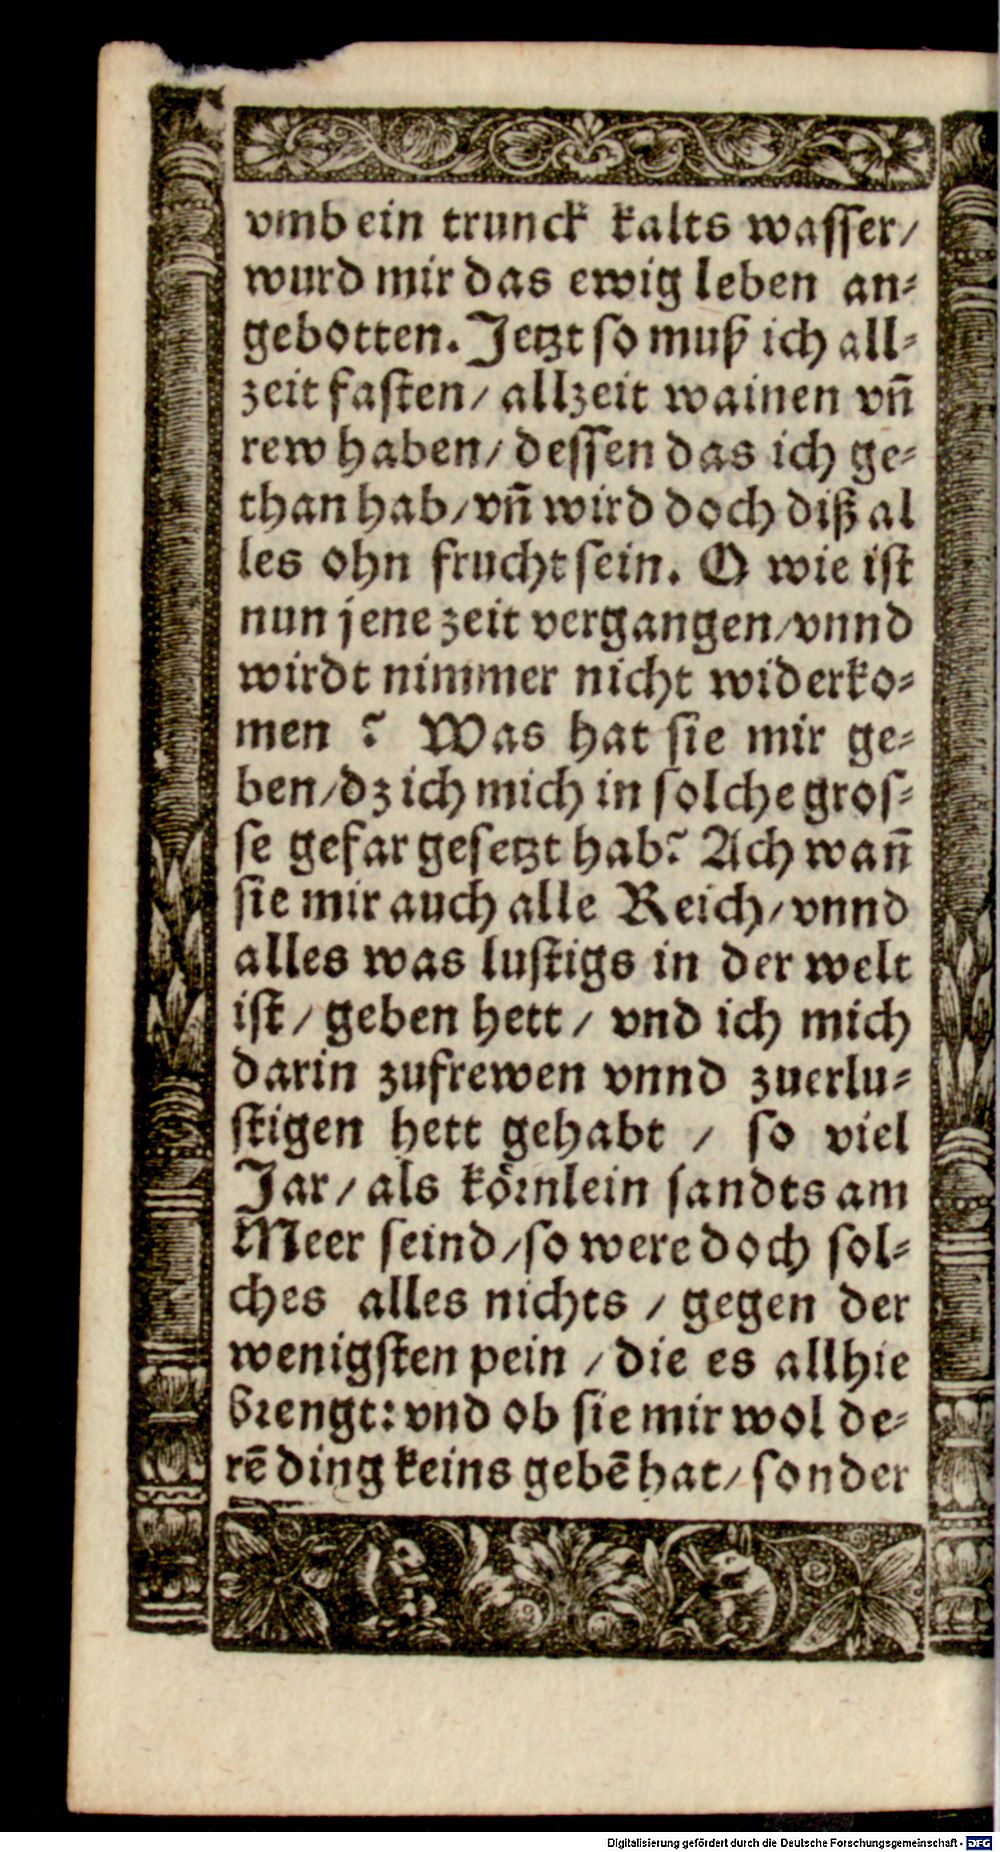 vmb ein trunck kalts wasser/
wurd mir das ewig leben an⸗
gebotten. Jetzt so muß ich all⸗
zeit fasten/ allzeit wainen vñ
rew haben/ dessen das ich ge⸗
than hab/ vñ wird doch diß al
les ohn frucht sein. O wie ist
nun jene zeit vergangen/ vnnd
wirdt nimmer nicht widerko⸗
men ? Was hat sie mir ge⸗
ben/ dz ich mich in solche gros⸗
se gefar gesetzt hab? Ach wañ
sie mir auch alle Reich/ vnnd
alles was lustigs in der welt
ist/ geben hett/ vnd ich mich
darin zufrewen vnnd zuerlu⸗
stigen hett gehabt / so viel
Jar/ als koͤrnlein sandts am
Meer seind/ so were doch sol⸗
ches alles nichts / gegen der
wenigsten pein / die es allhie
brengt: vnd ob sie mir wol de⸗
rẽ ding keins gebẽ hat/ sonder
Digitalisierung gefördert durch die Deutsche Forschungsgemeinschaft - DFG